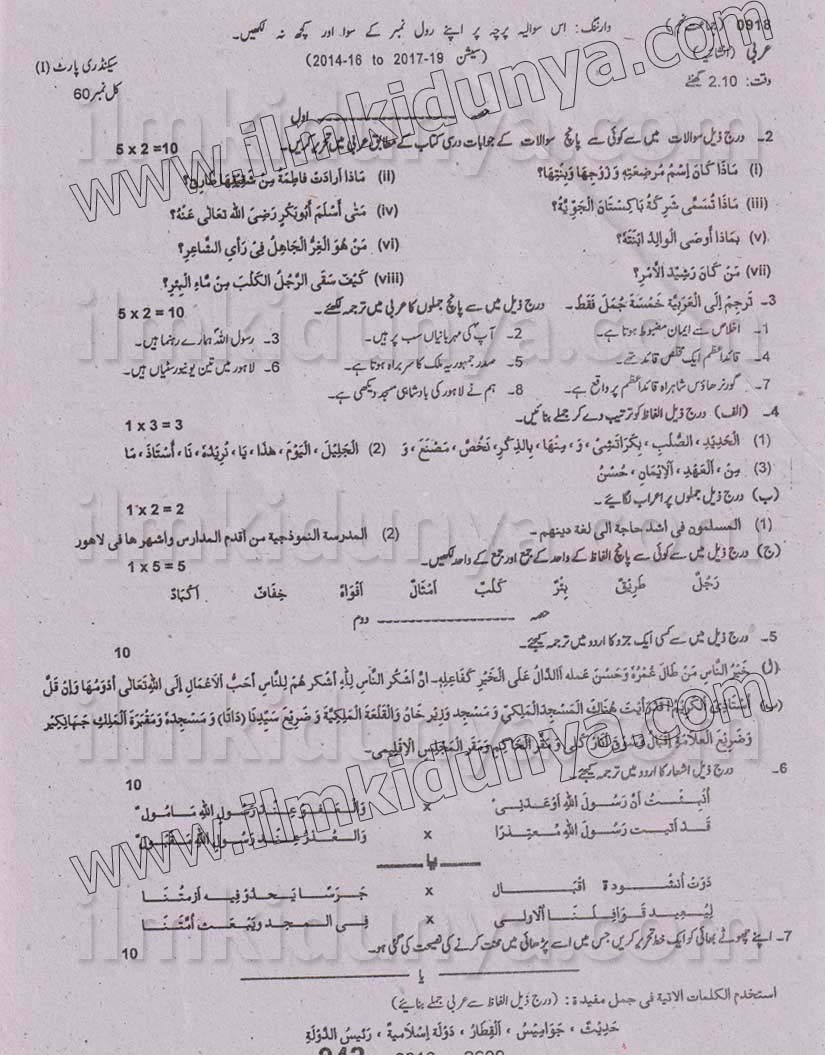 0918 وارننگ: اس سوالیہ پرچہ پر اپنے رول نمبر کے سوا اور کچھ نہ لکھیں۔
عربی (انشائیہ) (سیشن 2014-16 to 2017-19) سیکنڈری پارٹ (I)
وقت: 2.10 گھنٹے کل نمبر 60
حصہ اول
2۔ درج ذیل سوالات میں سے کوئی سے پانچ سوالات کے جوابات درسی کتاب کے مطابق عربی میں تحریر کریں۔ 5 x 2 =10
(i) مَاذَا كَانَ اِسْمُ مُرضِعَتِهٖ وَ زَوْجِهَا وَبِنْتِهَا؟ (ii) مَاذَا أرَادَتْ فَاطِمَةُ مِنْ شَقِيْقِهَا طَارِقٍ؟
(iii) مَاذَا تُسَمّٰى شَرِكَةُ بَاكِسْتَانَ الْجَوِّيَّةُ؟ (iv) مَتٰى أَسْلَمَ أَبُوبَكْرٍ رَضِىَ اللّٰه تَعَالٰى عَنْهُ؟
(v) بِمَاذَا أَوصَى الْوَالِدُ ابْنَتَهٗ؟ (vi) مَنْ هُوَ الْغِرُّ الْجَاهِلُ فِىْ رَأيِ الشَّاعِرِ؟
(vii) مَنْ كَانَ رَشِيْدَ الْأَمْرِ؟ (viii) كَيْفَ سَقَى الرَّجُلُ الْكَلْبَ مِنْ مَّاءِ الْبِئْرِ؟
3۔ تَرجِمْ اِلَى الْعَرَبِيَّةِ خَمْسَةَ جُمَلٍ فَقَط۔ درج ذیل میں سے پانچ جملوں کا عربی میں ترجمہ لکھئے۔ 5 x 2 = 10
1۔ اخلاص سے ایمان مضبوط ہوتا ہے۔ 2۔ آپؐ کی مہربانیاں سب پر ہیں۔ 3۔ رسول اللہؐ ہمارے رہنما ہیں۔
4۔ قائداعظم ایک مخلص قائد تھے۔ 5۔ صدر جمہوریہ ملک کا سربراہ ہوتا ہے۔ 6۔ لاہور میں تین یونیورسٹیاں ہیں۔
7۔ گورنر ہاؤس شاہراہ قائداعظم پر واقع ہے۔ 8۔ ہم نے لاہور کی بادشاہی مسجد دیکھی ہے۔
4۔ (الف) درج ذیل الفاظ کو ترتیب دے کر جملے بنائیں۔ 1 x 3 = 3
(1) الْحَدِيْدِ ، الصُّلْبِ ، بِكَرَاتْشِىْ ، وَ ، مِنْهَا ، بِالذِّكْرِ، نَخُصُّ ، مَصْنَعَ ، وَ (2) الْجَلِيْلَ ، الْيَوْمَ ، هٰذَا ، يَا ، نُرِيْدُهٗ ، نَا ، أُسْتَاذَ ، مَا
(3) مِنَ ، الْعَهْدِ ، الْاِيْمَانِ ، حُسْنُ
(ب) درج ذیل جملوں پر اعراب لگائیے۔ 1 x 2 = 2
(1) المسلمون فى اشد حاجة الى لغة دينهم ۔ (2) المدرسة النموذجية من أقدم المدارس واشهر ها فى لاهور
(ج) درج ذیل میں سے کوئی سے پانچ الفاظ کے واحد کے جمع اور جمع کے واحد لکھیں۔ 1 x 5 = 5
رَجُلٌ طَرِيْقٌ بِئْرٌ كَلْبٌ اَمْثَالٌ اَفْوَاهٌ خِفَافٌ اَكْبَادٌ
حصہ دوم
5۔ درج ذیل میں سے کسی ایک جزو کا اردو میں ترجمہ کیجئے۔ 10
(ا) خَيْرُ النَّاسِ مَنْ طَالَ عُمْرُهٗ وَحَسُنَ عَمله اَلدَّالُّ عَلَى الْخَيْرِ كَفَاعِلِهٖ۔ انَّ أَشْكَرَ النَّاسِ لِلّٰهِ أَشْكَر هُمْ لِلنَّاسِ أَحَبُّ الْاَعْمَالِ إِلَى اللّٰهِ تَعَالٰى أَدْوَمُهَا وَاِنْ قَلَّ
(ب) أُسْتَاذِىَ الْكَرِيْمَ! لَقَدْ رَأَيْتُ هُنَاكَ الْمَسْجِدَ الْمَلَكِيَّ وَ مَسْجِد وَزِيْر خَانْ وَالْقَلْعَةَ الْمَلَكِيَّةَ وَ ضَرِيْحَ سَيِّدِنَا (دَاتَا) وَ مَسْجِدَهٗ وَمَقْبَرَةَ الْمَلِكِ جَهَانْكِيْر
وَ ضَرِيْحَ الْعَلَّامَةِ اِقْبَالْ وَسُوْقَ أَنَارْ كَلِى وَ مَقَرَّ الْحَاكِمِ وَمَقَرَّ الْمَجْلِسِ الْاِقْلِيْمِى۔
6۔ درج ذیل اشعار کا اردو میں ترجمہ کیجئے۔ 10
أُنْبِئْتُ أَنَّ رَسُوْلَ اللّٰهِ أَوْعَدَنِىْ x وَالْعَفْوُ عِنْدَ رَسُوْلِ اللّٰهِ مَامُوْلٗ
قَدْ اَتَيْتُ رَسُوْلَ اللّٰهِ مُعْتَذِرًا x وَالْعُذْرُ عِنْدَ رَسُوْلِ اللّٰهِ مَقْبُوْلٗ
یا
دَوَتْ أُنْشُوْدَةُ اِقْبَالٍ x جَرَسًا يَحْدُوْ فِيْهِ اَزْمَتُنَا
لِيُعِيْدَ قَوَافِلَنَا الْأُوْلٰى x فِى الْمَجْدِ وَيَبْعَثَ أُمَّتَنَا
7۔ اپنے چھوٹے بھائی کو ایک خط تحریر کریں جس میں اسے پڑھائی میں محنت کرنے کی نصیحت کی گئی ہو۔ 10
یا
استخدم الكلمات الاتية فى جمل مفيدة : (درج ذیل الفاظ سے عربی جملے بنائیے)
حَدِيْثٌ ، جَوَامِيْسُ ، اَلْقِطَارُ ، دَوْلَةٌ اِسْلَامِيَةٌ ، رَئِيْسُ الدَّوْلَةِ
www.ilmkidunya.com